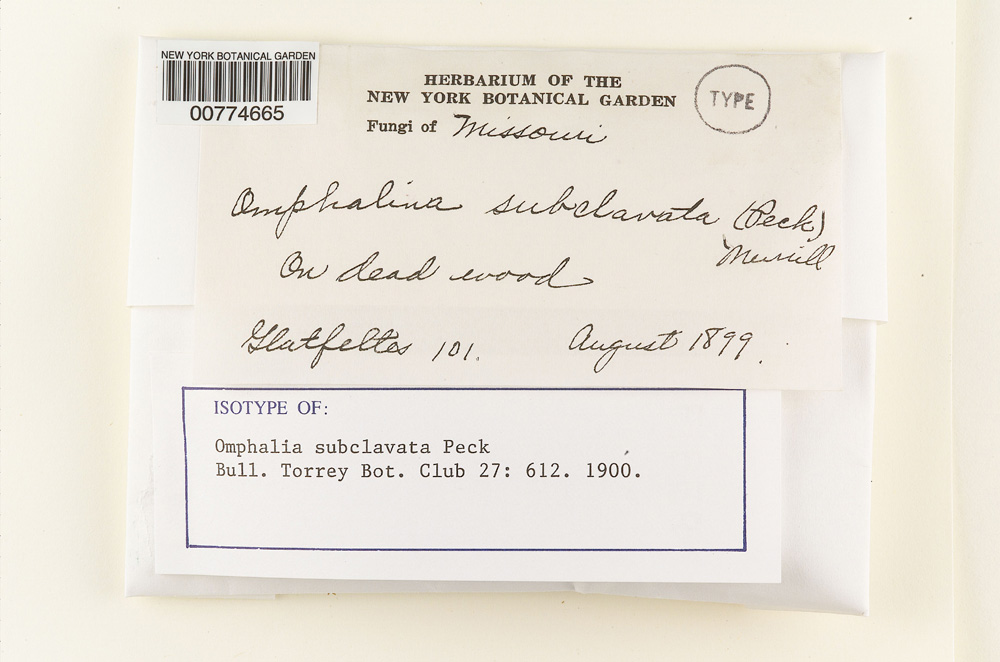 NEW YORK BOTANICAL GARDEN
00774665
HERBARIUM OF THE
NEW YORK BOTANICAL GARDEN
TYPE
Fungi of Missouri
Omphalina subclavata (Peck)
Murrill
On dead wood
Glatfelter 101. August 1899.
ISOTYPE OF:
Omphalia subclavata Peck
Bull. Torrey Bot. Club 27: 612. 1900.